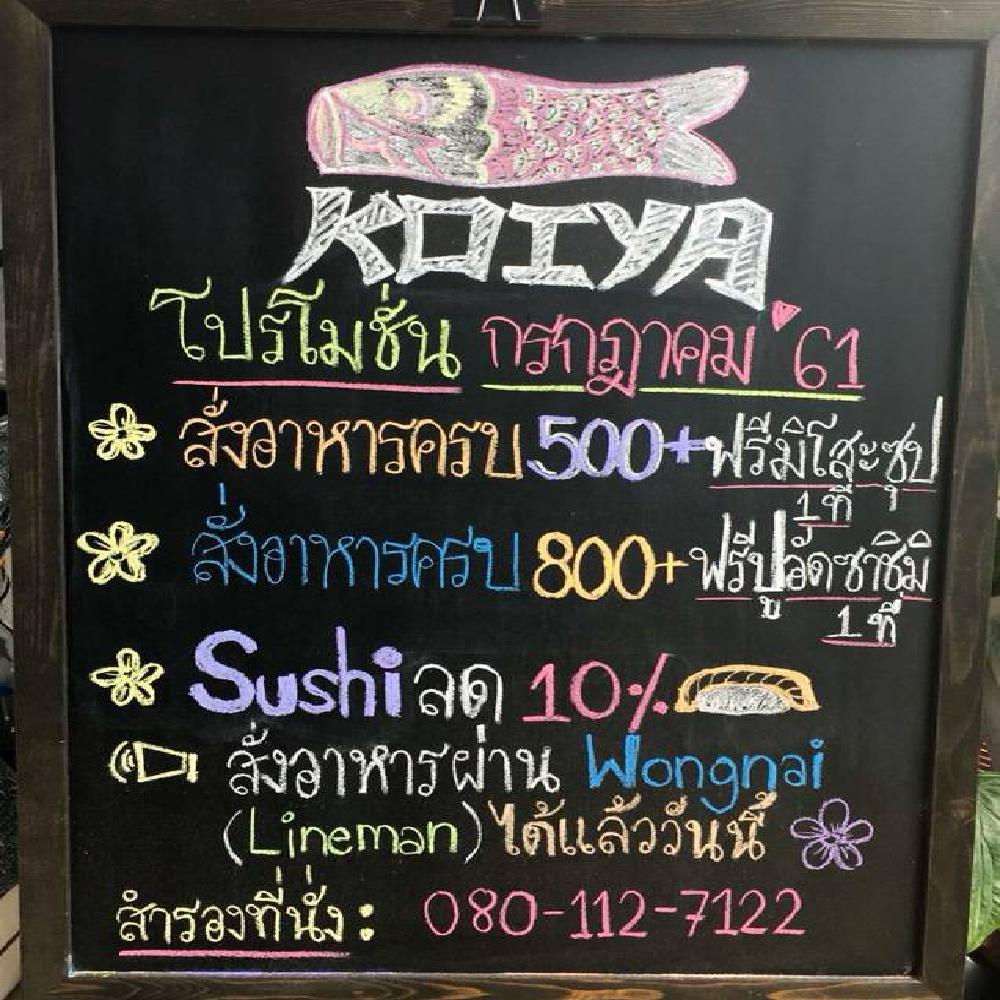 KOIYA
โปรโมชั่น กรกฎาคม '61
สั่งอาหารครบ 500+ ฟรีมิโสะซุป
1 ที่
สั่งอาหารครบ 800+ ฟรีปูอัดซาชิมิ
1 ที่
Sushi ลด 10%
สั่งอาหารผ่าน Wongnai
(Lineman) ได้แล้ววันนี้
สำรองที่นั่ง : 080-112-7122